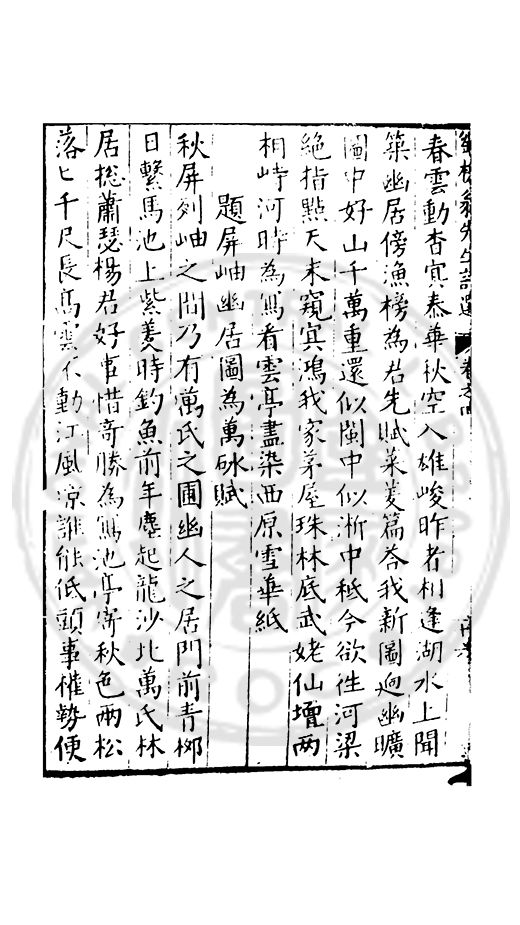 春雲動杳冥泰華秋空入雄峻昨者相逢湖水上聞
築幽居傍漁榜為君先賦菉菱篇荅我新圖迥幽曠
圖中好山千萬重還似閩中似淛中秪今欲徃河梁
絶指點天末窺冥鴻我家茅屋珠林底武姥仙壇两
相峙河時為寫看雲亭盡染西原雪華紙
題屏岫幽居圖為萬砯賦
秋屏列岫之間乃有萬氏之圃幽人之居門前青桺
日繫馬池上紫菱時釣魚前年塵起龍沙北萬氏林
居捴蕭瑟楊君好事惜竒勝為寫池亭寄秋色兩松
落匕千尺長髙雲不動江風凉誰能低頭事權勢便